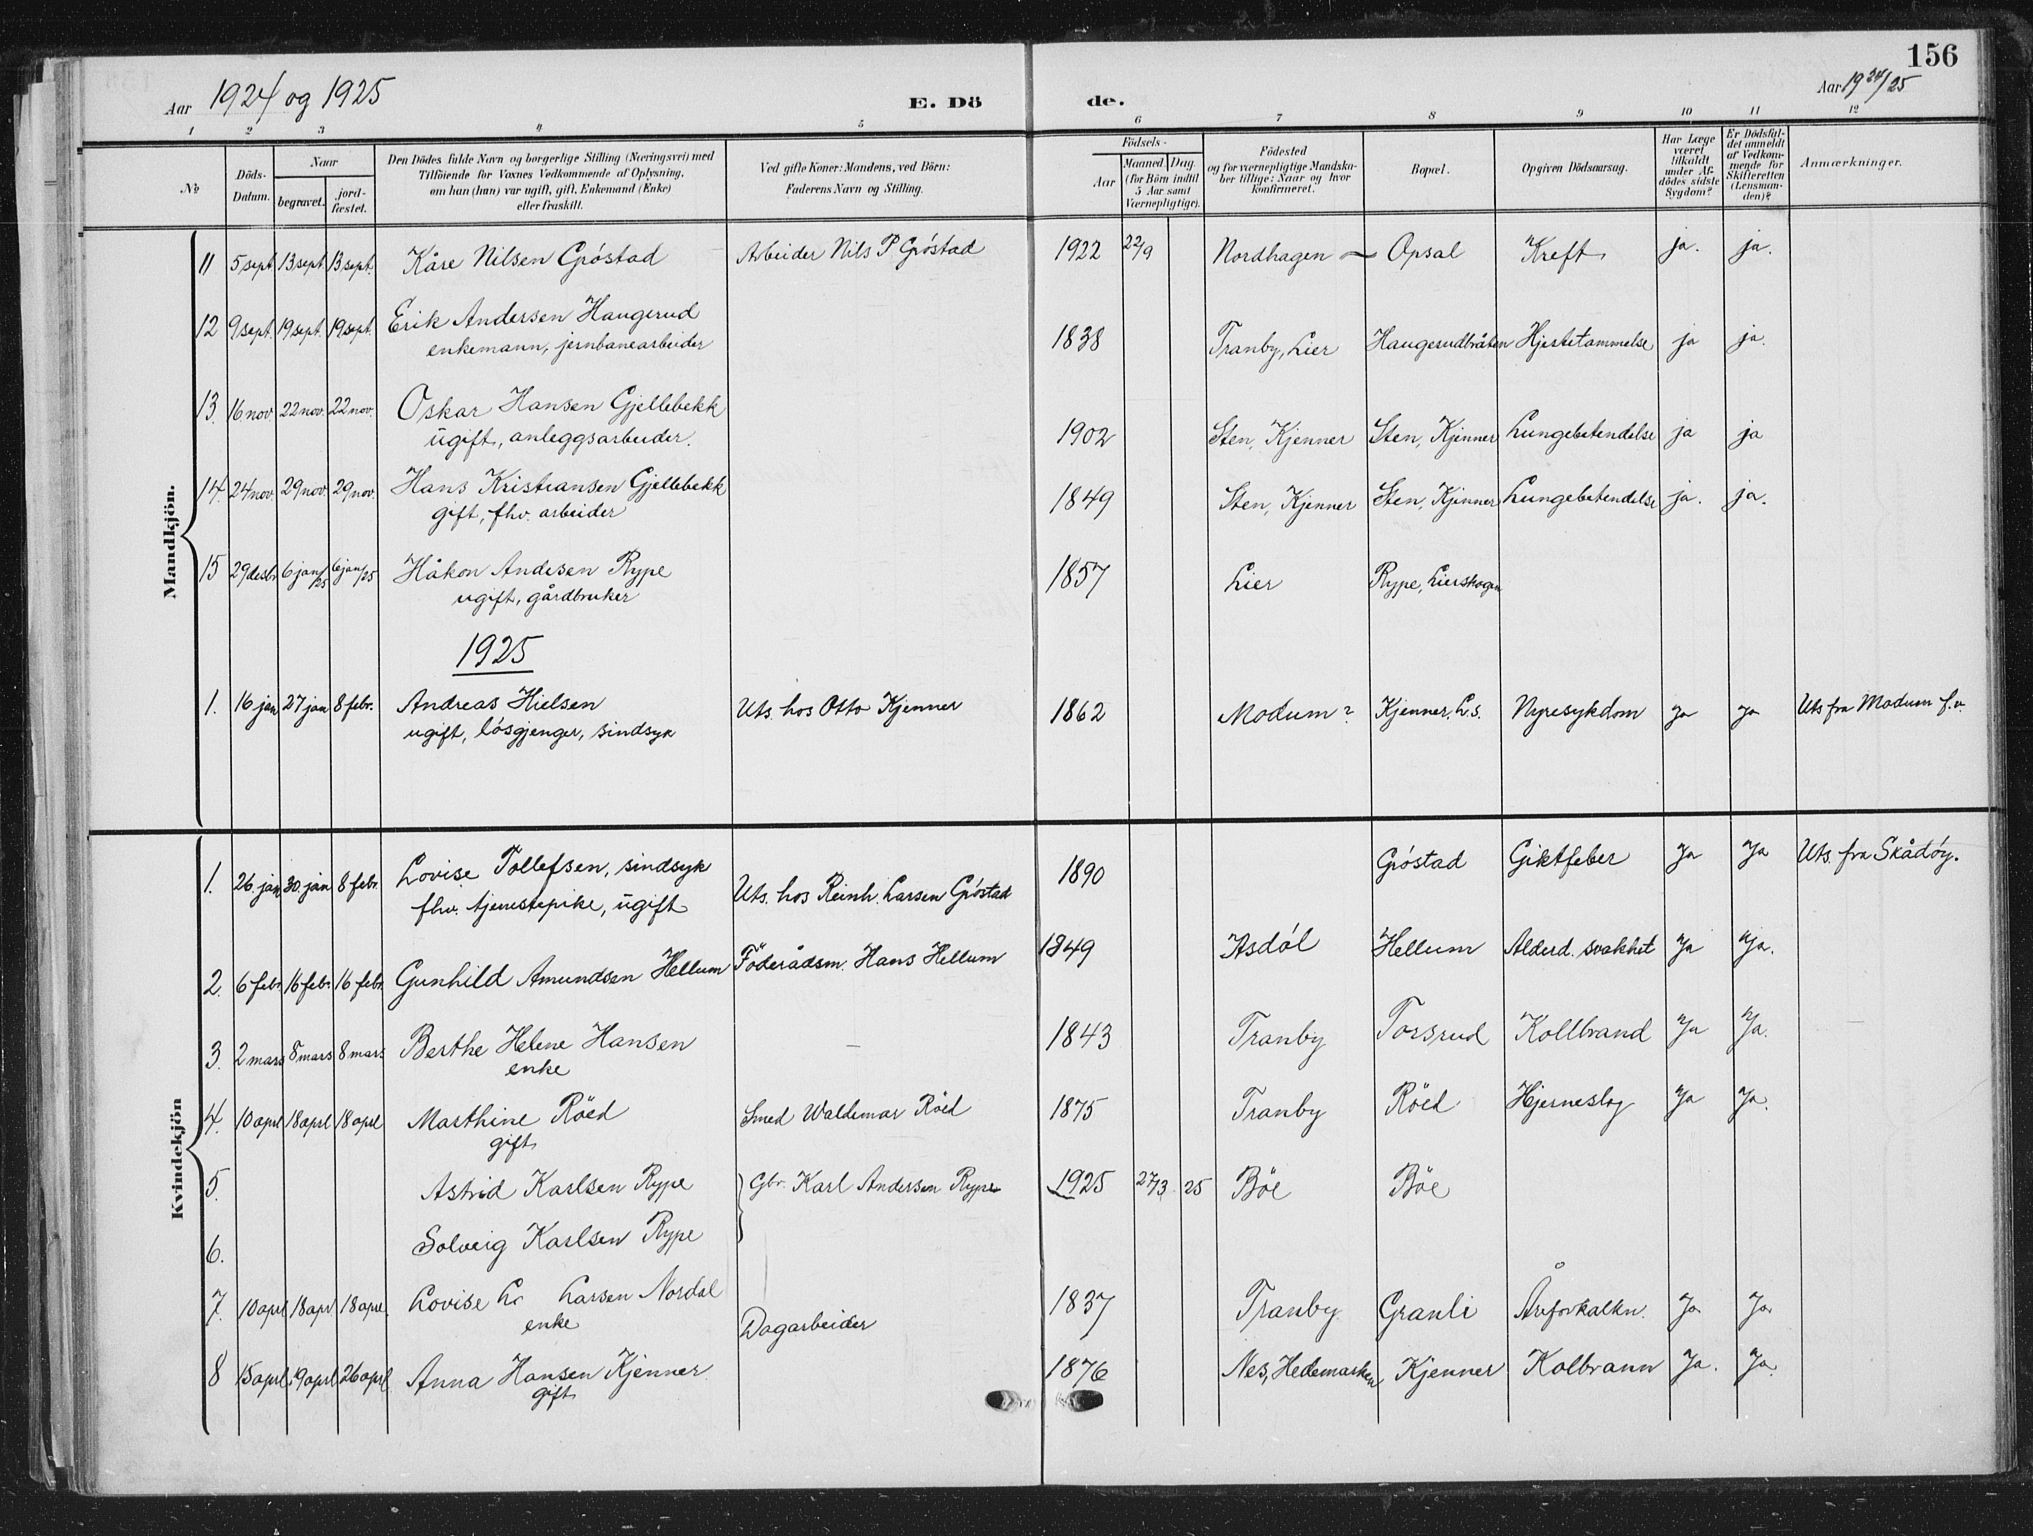 156
Aar 1924 og 1925
E. Dö de.
Aar 1924/25
1 2 3 4 5 6 7 8 9 10 11 12
No
Döds-Datum.
Naar
begravet.
jord-fæstet.
Den Dödes fulde Navn og borgerlige Stilling (Næringsvei) med
Tilföiende for Voxnes Vedkommende af Oplysning,
om han (hun) var ugift, gift, Enkemand (Enke)
eller fraskilt.
Ved gifte Koner: Mandens, ved Börn:
Faderens Navn og Stilling.
Födsels-
Aar
Maaned. Dag.
(for Börn indtil
5 Aar samt
Værnepligtige).
Födested
og for værnepligtige Mandska-
ber tillige: Naar og hvor
konfirmeret.
Bopæl.
Opgiven Dödsaarsag.
Har Læge
været
tilkaldt
under Af-
dödes sidste
Sygdom?
Er Dödsfal-
det anmeldt
af Vedkom-
mende for
Skifteretten
(Lensman-
den)?
Anmærkninger.
Mandkjön.
11 5 sept. 13 sept. 13 sept. Kåre Nilsen Gröstad Arbeider Nils P Gröstad 1922 22/9 Nordhagen Opsal Kreft ja. ja.
12 9 sept. 19 sept. 19 sept. Erik Andersen Haugerud 1838 Tranby, Lier Haugerudbråten Hjertetammelse ja ja.
enkemann, jernbanearbeider
13. 16 nov. 22 nov. 22 nov. Oskar Hansen Gjellebekk 1902 Sten, Kjenner Sten, Kjenner Lungebetendelse ja ja
ugift, anleggsarbeider.
14. 24 nov. 29 nov. 29 nov. Hans Kristiansen Gjellebekk 1849 Sten, Kjenner Sten, Kjenner Lungebetendelse ja. ja.
gift, fhv. arbeider
15 29 desbr 6 jan/25 6 jan/25 Håkon Andersen Rype 1857 Lier Rype, Lierskogen
ugift, gårdbruker
1925
1. 16 jan 27 jan 8 febr. Andreas Hielsen Uts. hos Otto Kjenner 1862 Modum? Kjenner, L.s. Nyresykdom ja ja Uts fra Modum f.v.
ugift, lösgjenger, sindsyk
Kvindekjön
1. 26. jan 30. jan 8 febr. Lovise Tollefsen, sindsyk Uts. hos Reinh. Larsen Gröstad 1890 Gröstad Giktfeber Ja Ja Uts. fra Skådöy.
fhv. tjenestepike, ugift
2. 6 febr. 16 febr. 16 febr. Gunhild Amundsen Hellum Föderådsm. Hans Hellum 1849 Asdöl Hellum Alderd. svakhet Ja Ja.
3. 2 mars 8 mars 8 mars Berthe Helene Hansen — 1843 Tranby Torsrud Kollbrand Ja Ja.
enke
4. 10 aprl 18 aprl 18 aprl Marthine Röed Smed Waldemar Röed 1875 Tranby Röed Hjerneslag Ja Ja.
gift
5. Astrid Karlsen Rype Gbr. Karl Andersen Rype 1925 27/3 25 Böe Böe
6. Solveig Karlsen Rype
7. 10 aprl 18 aprl 18 aprl. Lovise Larsen Nordal Dagarbeider 1837 Tranby Granli Åreforkalkn. Ja Ja
enke
8 15 aprl 19 aprl 26 aprl Anna Hansen Kjenner 1876 Nes, Hedemarken Kjenner Kolbrann Ja. Ja.
gift